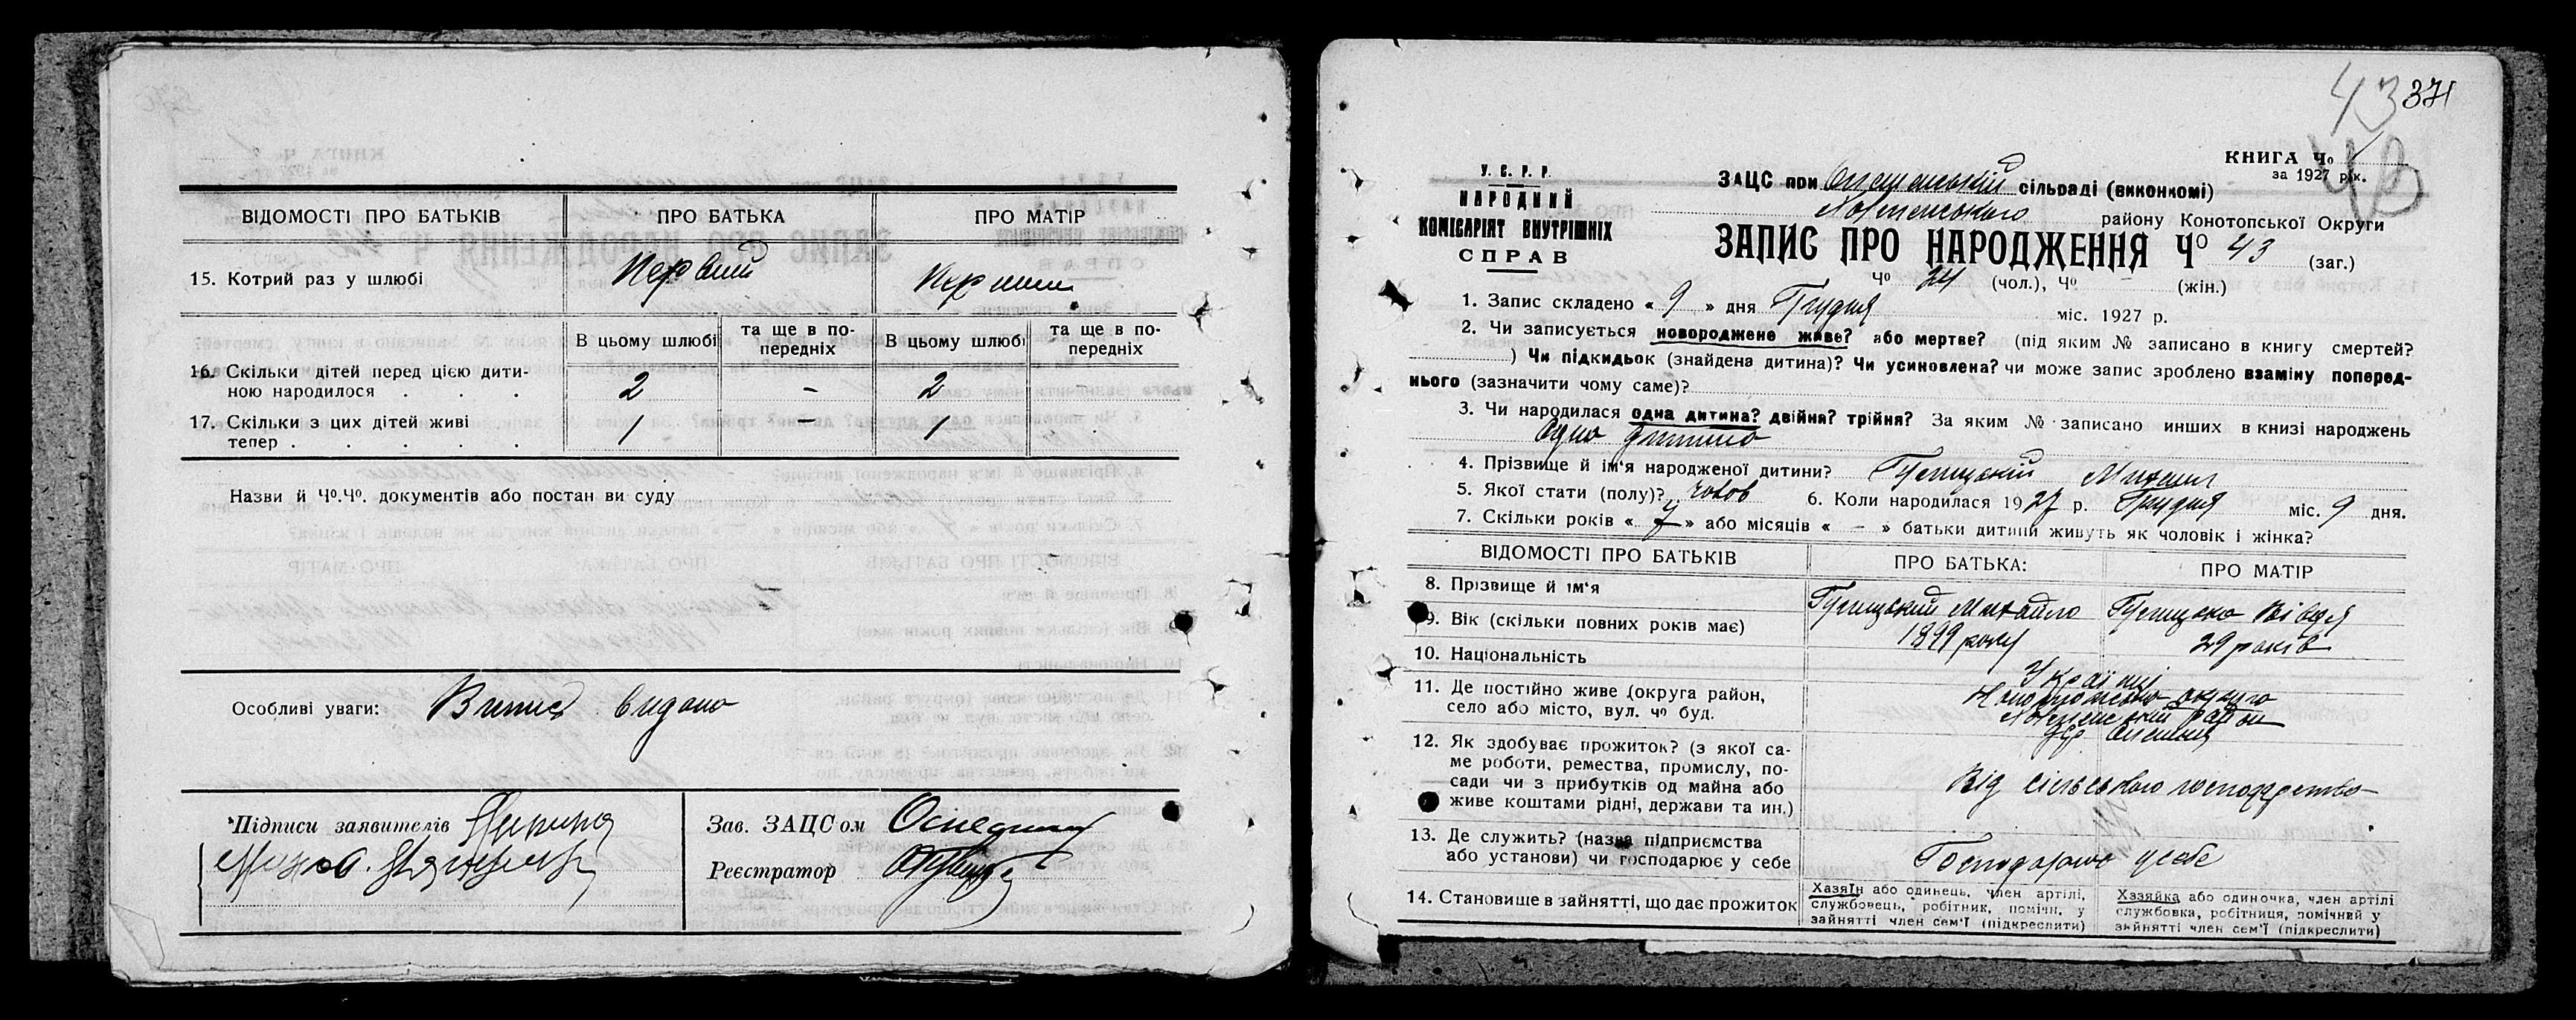 ВІДОМОСТІ ПРО БАТЬКІВ ПРО БАТЬКА ПРО МАТІР
15. Котрий раз у шлюбі Первий Перший
В цьому шлюбі та ще в по-передніх В цьому шлюбі та ще в по-передніх
16. Скільки дітей перед цією дити-
ною народилося . . . 2 - 2 -
17. Скільки з цих дітей живі
тепер . . . . . 1 - 1
Назви й Чо.Чо. документів або постан ви суду
Особливі уваги: Випис видано
Підписи заявителів
Зав. ЗАЦСом
Реєстратор
43 371
КНИГА Чо
за 1927 рік.
43
У. С. Р. Р.
НАРОДНИЙ
КОМІСАРІЯТ ВНУТРІШНІХ
СПРАВ
ЗАЦС при сільраді (виконкомі)
району Конотопської Округи
ЗАПИС ПРО НАРОДЖЕННЯ Чо 43 (заг.)
Чо 24 (чол.), Чо - (жін.)
1. Запис складено « 9 » дня Грудня міс. 1927 р.
2. Чи записується новороджене живе? або мертве? (під яким № записано в книгу смертей?
) Чи підкидьок (знайдена дитина)? Чи усиновлена? чи може запис зроблено взаміну поперед-
нього (зазначити чому саме)?
3. Чи народилася одна дитина? двійня? трійня? За яким № записано инших в книзі народжень
Одна дитина
4. Прізвище й ім'я народженої дитини? Михаил
5. Якої стати (полу)? чолов 6. Коли народилася 1927 р. Грудня міс. 9 дня.
7. Скільки років « 7 » або місяців « — » батьки дитини живуть як чоловік і жінка?
ВІДОМОСТІ ПРО БАТЬКІВ ПРО БАТЬКА: ПРО МАТІР
8. Прізвище й ім'я Михайло Вівдя
9. Вік (скільки повних років має) 1899 року 29 років
10. Національність Україні
11. Де постійно живе (округа район,
село або місто, вул. чо буд. Конотопська округа
район
12. Як здобуває прожиток? (з якої са-
ме роботи, ремества, промислу, по-
сади чи з прибутків од майна або
живе коштами рідні, держави та ин.) Від сільського господарства
13. Де служить? (назва підприємства
або установи) чи господарює у себе Господарює у себе
14. Становище в зайнятті, що дає прожиток
Хазяїн або одинець, член артілі,
службовець, робітник, помічн. у
зайнятті член сем'ї (підкреслити)
Хазяйка або одиночка, член артілі
службовка, робітниця, помічний у
зайнятті член сем'ї (підкреслити)